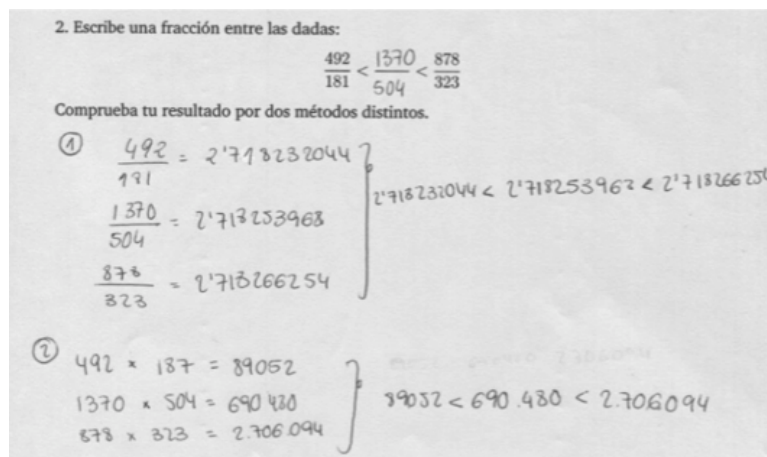 2. Escribe una fracción entre las dadas:
492/181 < 1370/504 < 878/323
Comprueba tu resultado por dos métodos distintos.
① 492/181 = 2'718232044
1370/504 = 2'718253968
878/323 = 2'718266254
2'718232044 < 2'718253962 < 2'71826625
② 492 × 187 = 89052
1370 × 504 = 690 480
878 × 323 = 2.706.094
89052 < 690.480 < 2.706094